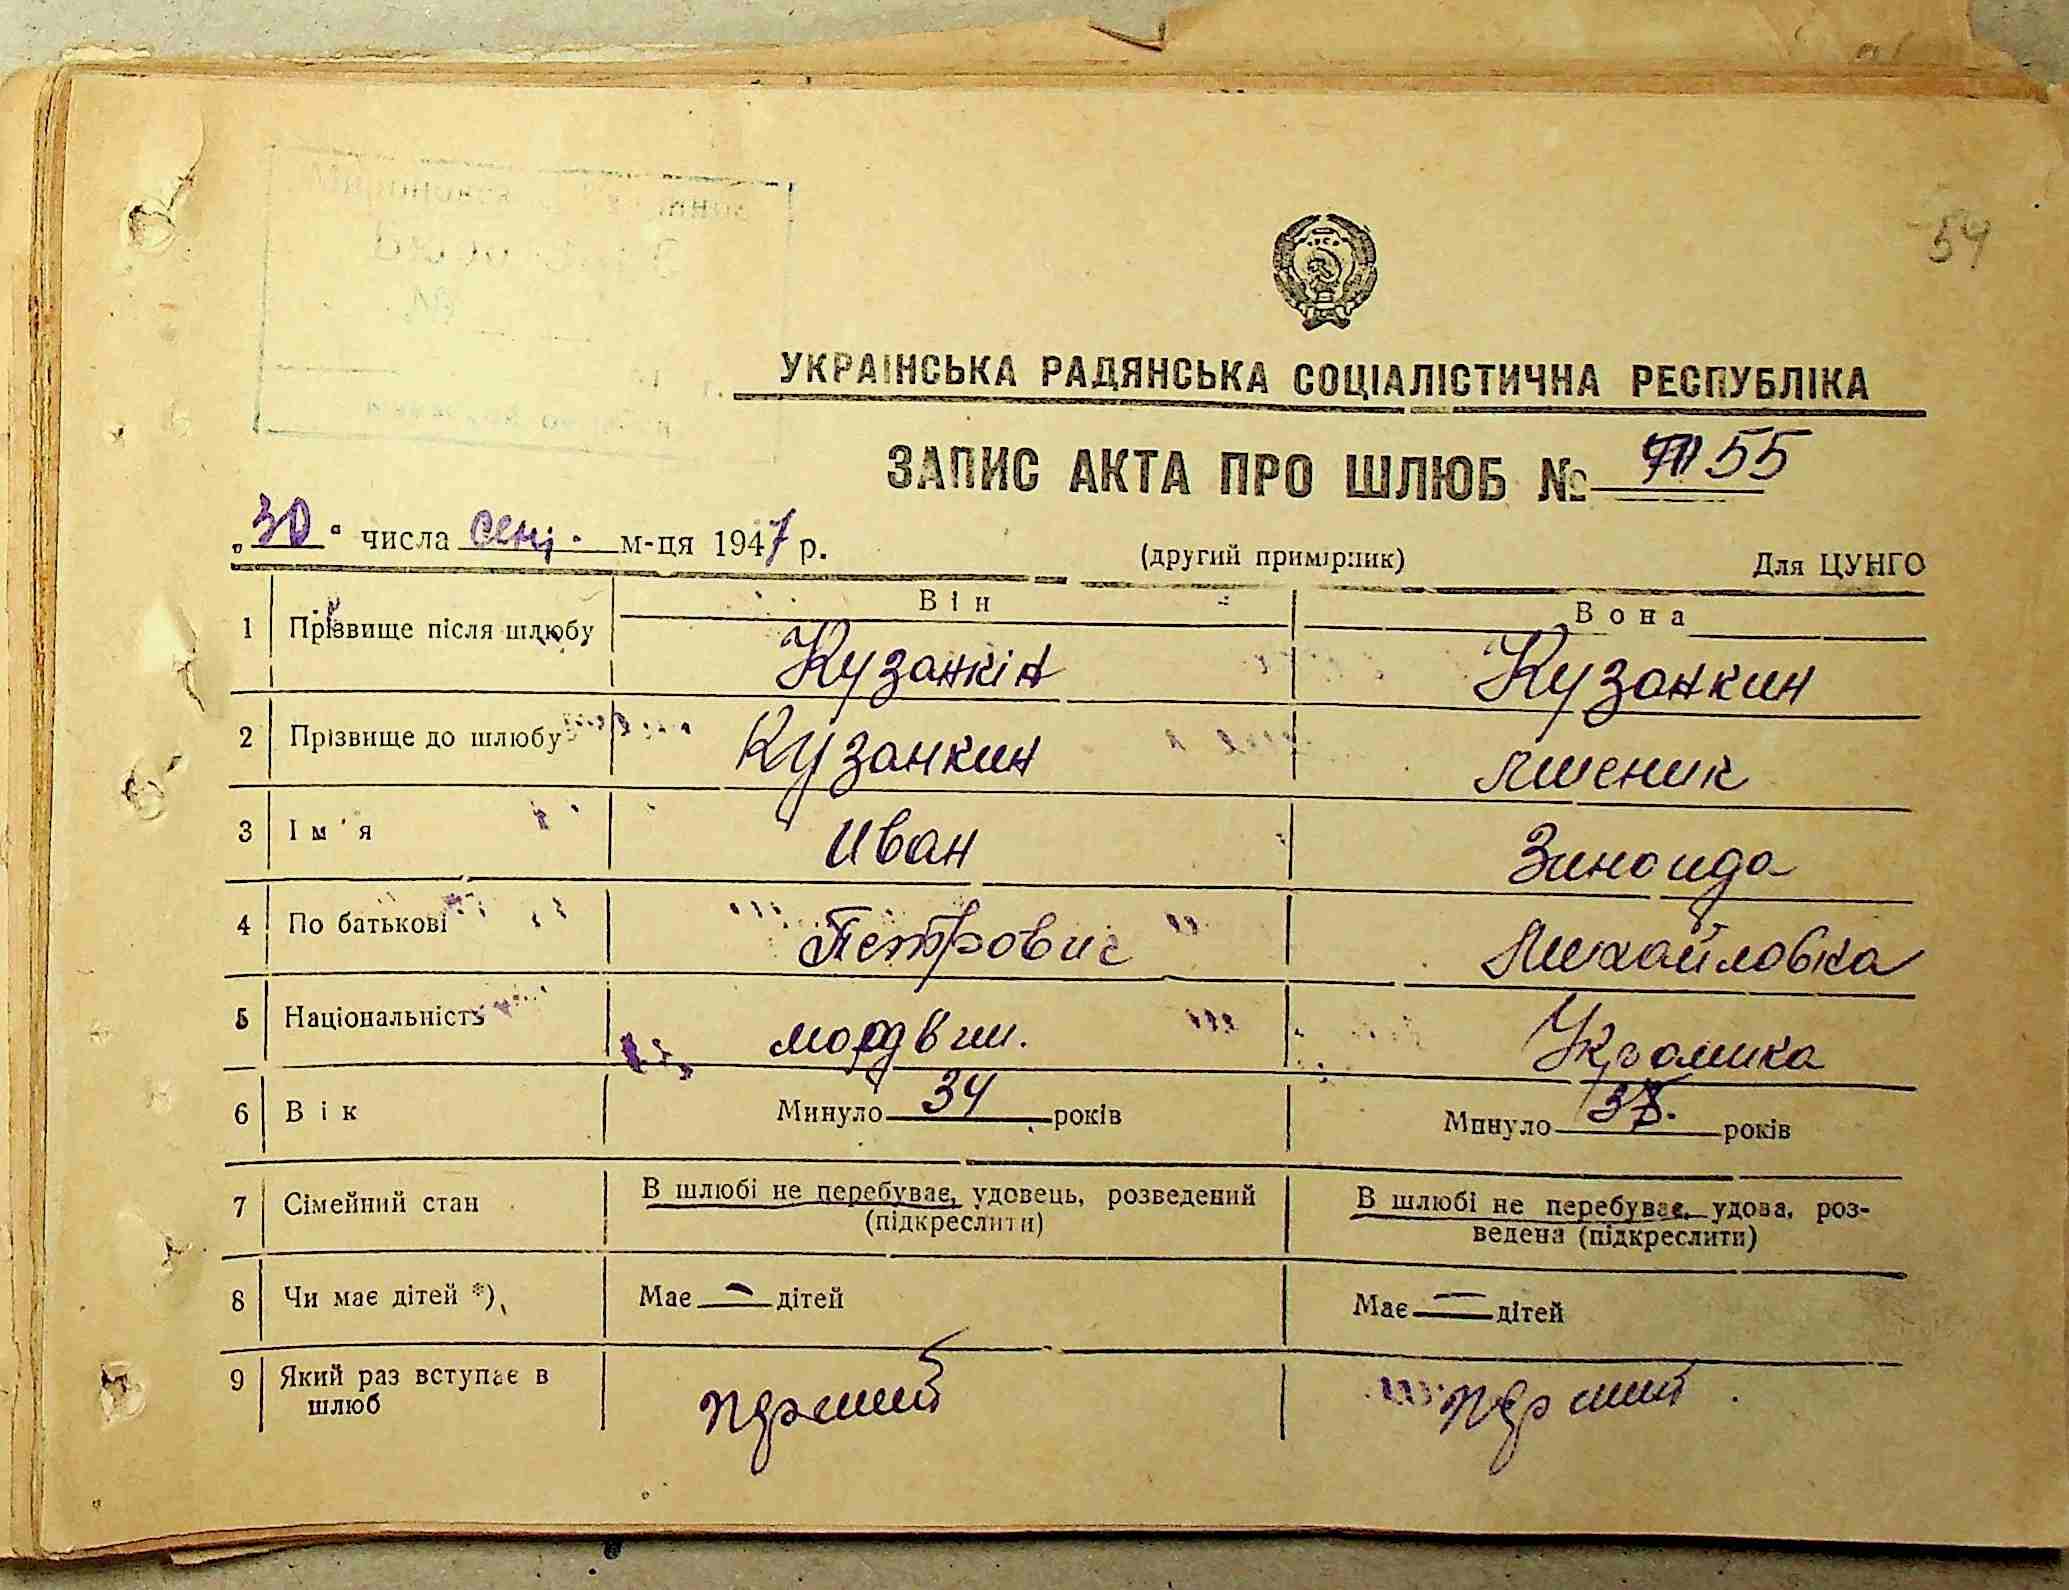 54
УКРАЇНСЬКА РАДЯНСЬКА СОЦІАЛІСТИЧНА РЕСПУБЛІКА
ЗАПИС АКТА ПРО ШЛЮБ № 55
„30“ числа сент. м-ця 1947 р. (другий примірник) Для ЦУНГО
Він Вона
1 Прізвище після шлюбу Кузанкін Кузанкин
2 Прізвище до шлюбу Кузанкин Пшеник
3 Ім'я Иван Зинаида
4 По батькові Петрович Михайловна
5 Національність мордвин. Украинка
6 Вік Минуло 34 років Минуло років
7 Сімейний стан В шлюбі не перебуває, удовець, розведений (підкреслити) В шлюбі не перебуває, удова, роз-
ведена (підкреслити)
8 Чи має дітей *) Має — дітей Має — дітей
9 Який раз вступає в шлюб перший перший